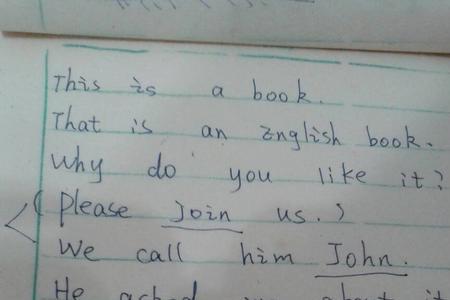 This is a book.
That is an English book.
Why do you like it?
(Please Join us.)
We call him John.
He asked